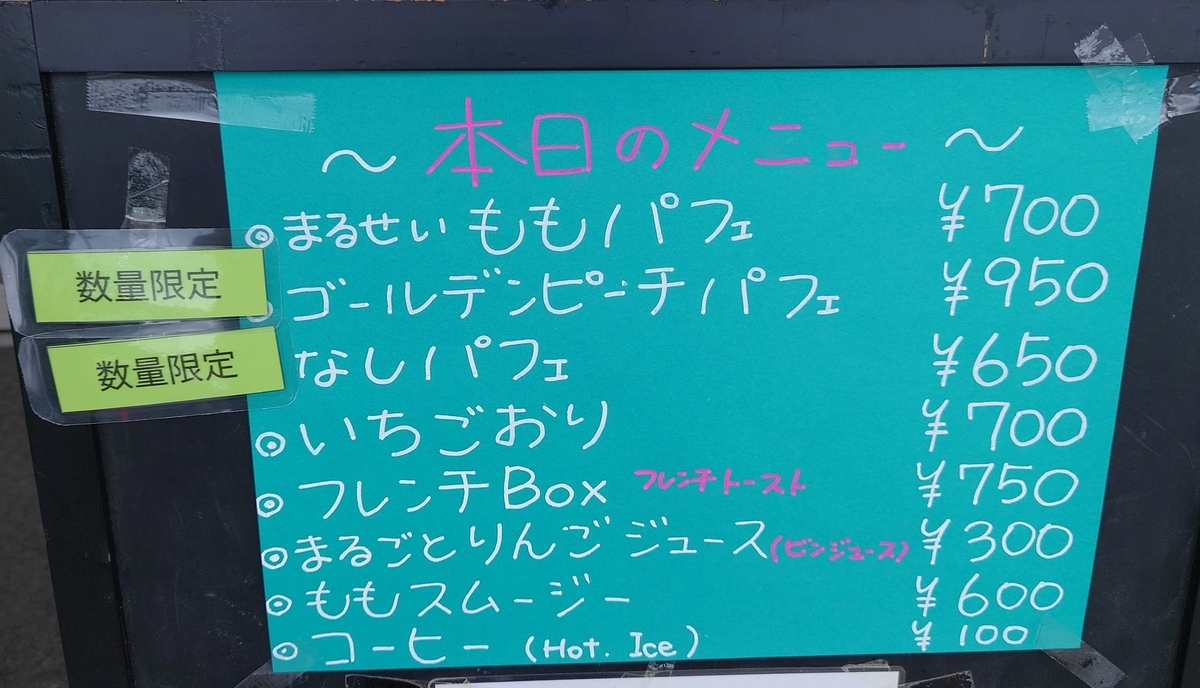 ～ 本日のメニュー ～
◎まるせい ももパフェ ¥700
数量限定 ゴールデンピーチパフェ ¥950
数量限定 なしパフェ ¥650
◎いちごおり ¥700
◎フレンチBox フレンチトースト ¥750
◎まるごとりんごジュース(ビンジュース) ¥300
◎ももスムージー ¥600
◎コーヒー (Hot. Ice) ¥100